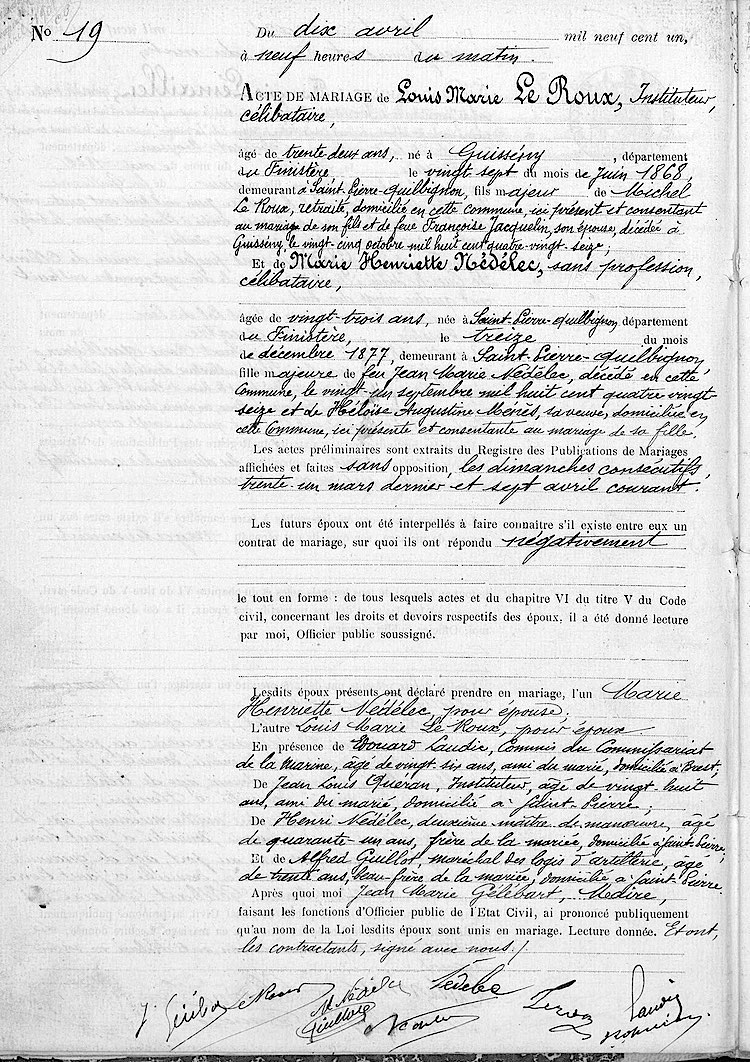 No 19
Du dix avril mil neuf cent un,
à neuf heures du matin.
ACTE DE MARIAGE de Louis Marie Le Roux, Instituteur,
célibataire,
âgé de trente deux ans, né à Guissény, département
du Finistère le vingt sept du mois de Juin 1868,
demeurant à Saint-Pierre-Quilbignon, fils majeur de Michel
Le Roux, retraité, domicilié en cette Commune, ici présent et consentant
au mariage de son fils et de feue Françoise Jacquelin, son épouse, décédée à
Guissény, le vingt cinq octobre mil huit cent quatre-vingt-seize;
Et de Marie Henriette Nédélec, sans profession,
célibataire,
âgée de vingt-trois ans, née à Saint-Pierre-Quilbignon, département
du Finistère, le treize du mois
de décembre 1877, demeurant à Saint-Pierre-Quilbignon,
fille majeure de feu Jean Marie Nédélec, décédé en cette
Commune, le vingt-un septembre mil huit cent quatre-vingt-
seize et de Héloïse Augustine Ménès, sa veuve, domiciliée en
cette Commune, ici présente et consentante au mariage de sa fille.
Les actes préliminaires sont extraits du Registre des Publications de Mariages
affichées et faites sans opposition, les dimanches consécutifs,
trente-un mars dernier et sept avril courant.
Les futurs époux ont été interpellés à faire connaître s'il existe entre eux un
contrat de mariage, sur quoi ils ont répondu négativement
le tout en forme : de tous lesquels actes et du chapitre VI du titre V du Code
civil, concernant les droits et devoirs respectifs des époux, il a été donné lecture
par moi, Officier public soussigné.
Lesdits époux présents ont déclaré prendre en mariage, l'un Marie
Henriette Nédélec, pour épouse;
L'autre Louis Marie Le Roux, pour époux
En présence de Edouard Laudic, Commis du Commissariat
de la Marine, âgé de vingt six ans, ami du marié, domicilié à Brest;
De Jean Louis Queran, Instituteur, âgé de vingt-huit
ans, ami du marié, domicilié à Saint-Pierre;
De Henri Nédélec, deuxième maître de manœuvre, âgé
de quarante-un ans, frère de la mariée, domicilié à Saint-Pierre;
Et de Alfred Guillot, maréchal des logis d'artillerie, âgé
de trente ans, beau-frère de la mariée, domicilié à Saint-Pierre.
Après quoi moi Jean Marie Gélibart, Maire,
faisant les fonctions d'Officier public de l'Etat Civil, ai prononcé publiquement
qu'au nom de la Loi lesdits époux sont unis en mariage. Lecture donnée. Et ont,
les contractants, signé avec nous./.
Nédélec
Guillot